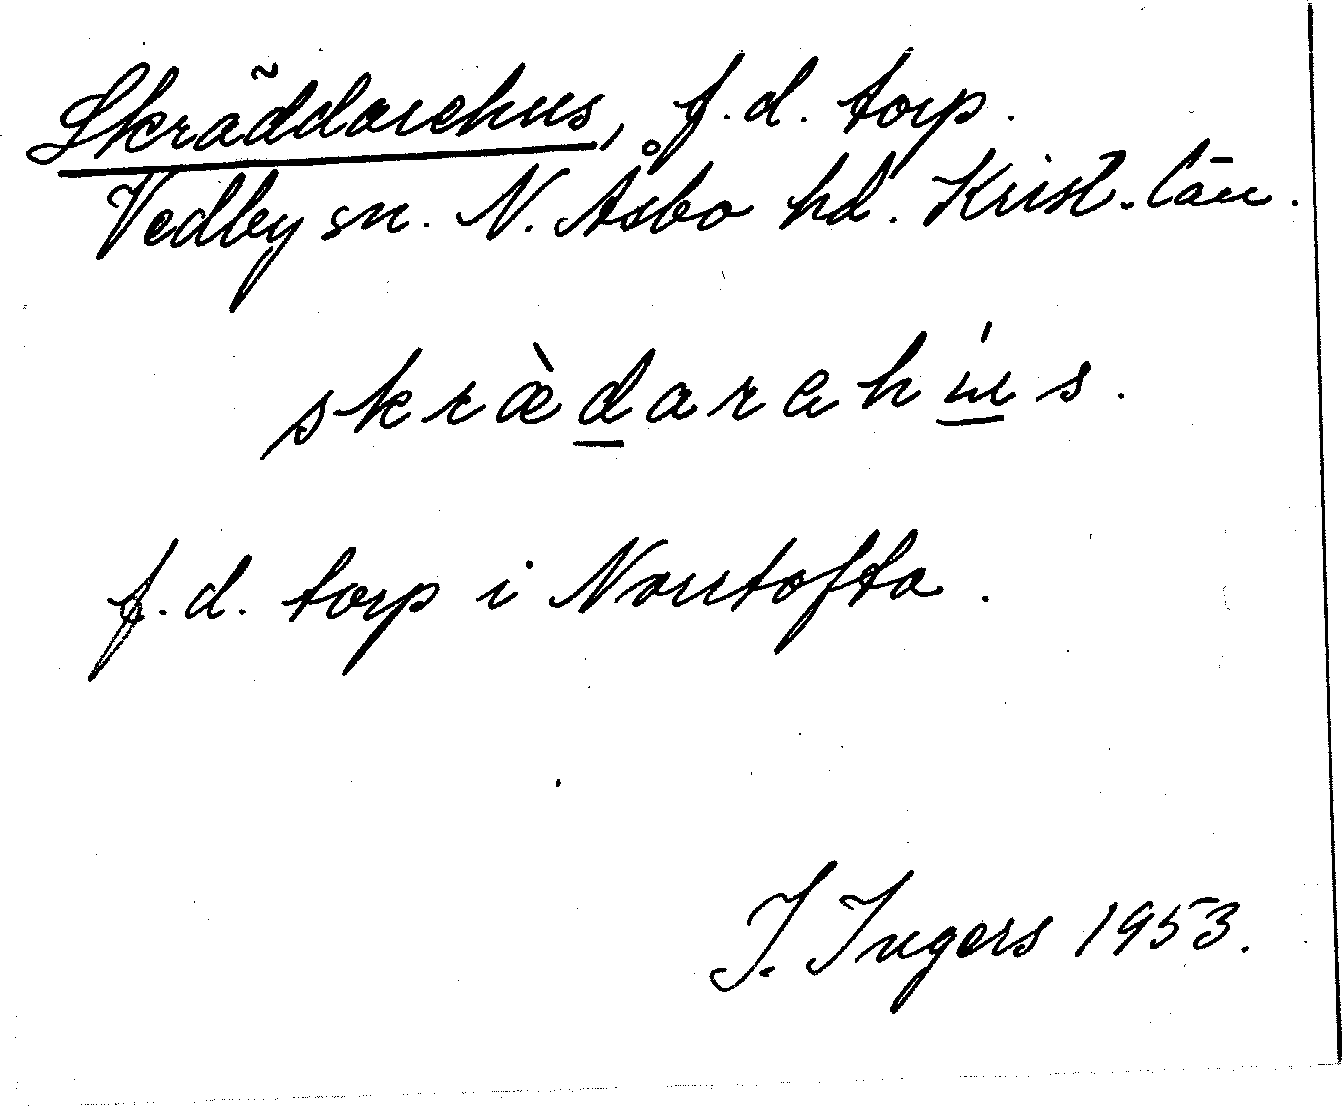 Skräddarehus, f.d. torp.
Vedby sn. N. Åsbo hd. Krist. län.
skræ̀darehús.
f.d. torp i Norrtofta.
I. Ingers 1953.